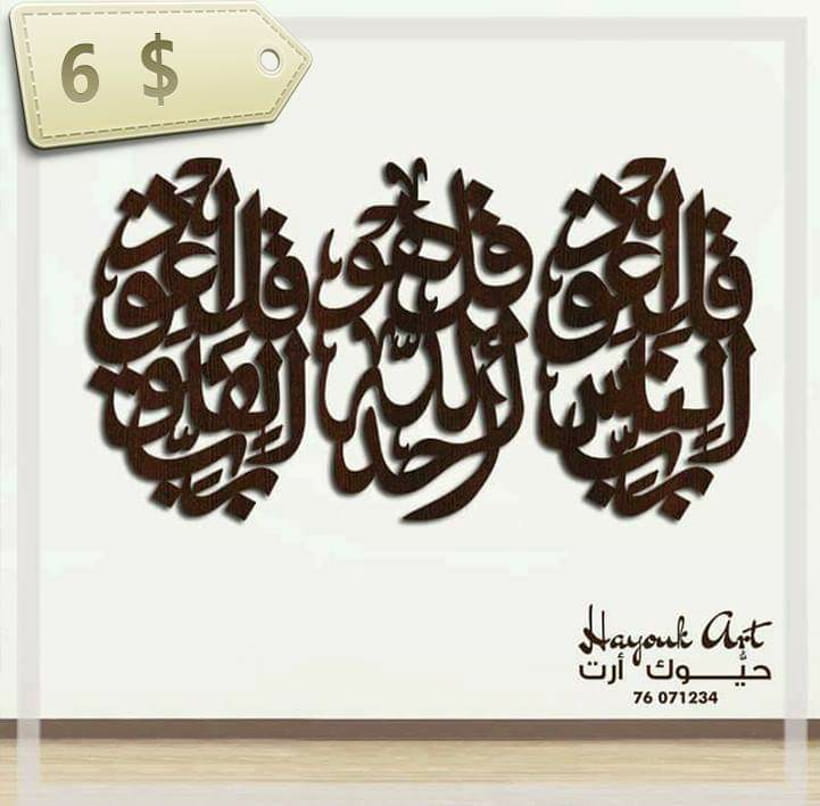 6 $
قل أعوذ برب الناس
قل هو الله أحد
قل أعوذ برب الفلق
Hayouk Art
حيُّـــوك أرت
76 071234